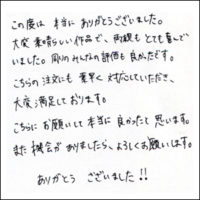 この度は、本当に ありがとうございました。
大変 素晴らしい作品で、両親も とても喜んで
いました。周りの みんなの評価も 良かったです。
こちらの 注文にも 素早く 対応していただき、
大変 満足して おります。
こちらに お願いして 本当に 良かったと 思います。
また 機会が ありましたら、よろしくお願いします。
ありがとう ございました!!